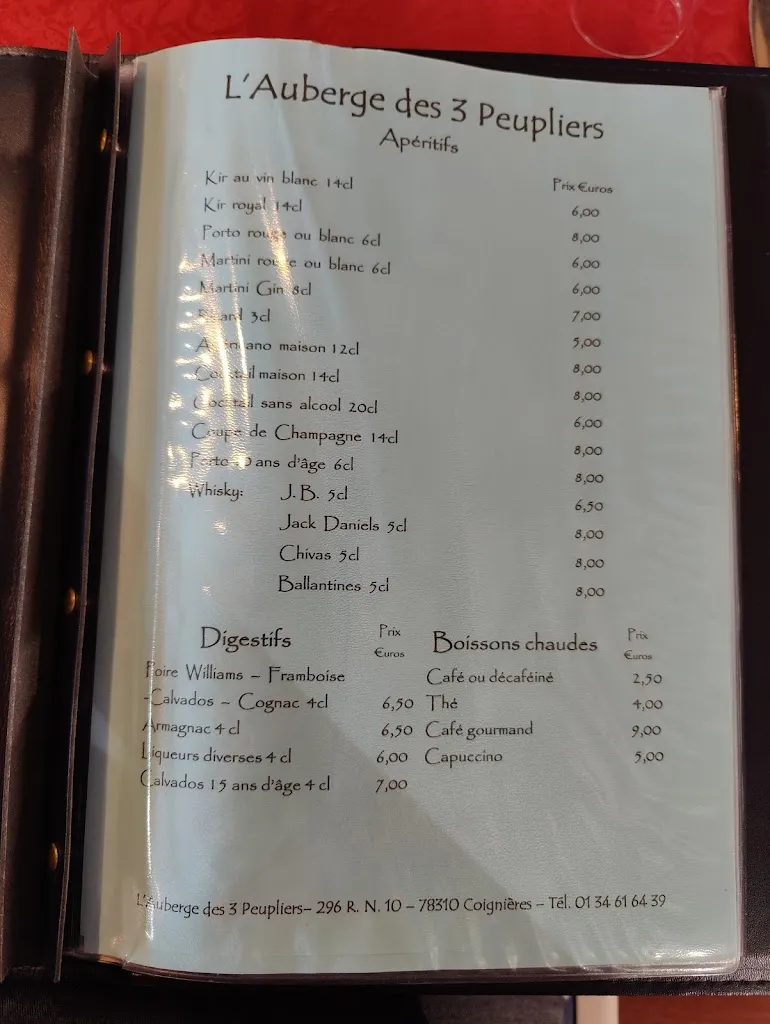 L'Auberge des 3 Peupliers
Apéritifs
Prix €uros
Kir au vin blanc 14cl 6,00
Kir royal 14cl 8,00
Porto rouge ou blanc 6cl 6,00
Martini rouge ou blanc 6cl 6,00
Martini Gin 8cl 7,00
Ricard 3cl 5,00
Américano maison 12cl 8,00
Cocktail maison 14cl 8,00
Cocktail sans alcool 20cl 6,00
Coupe de Champagne 14cl 8,00
Porto ans d'âge 6cl 8,00
Whisky: J.B. 5cl 6,50
Jack Daniels 5cl 8,00
Chivas 5cl 8,00
Ballantines 5cl 8,00
Digestifs Prix €uros
Poire Williams – Framboise
-Calvados – Cognac 4cl 6,50
Armagnac 4 cl 6,50
Liqueurs diverses 4 cl 6,00
Calvados 15 ans d'âge 4 cl 7,00
Boissons chaudes Prix €uros
Café ou décaféiné 2,50
Thé 4,00
Café gourmand 9,00
Capuccino 5,00
L'Auberge des 3 Peupliers– 296 R. N. 10 – 78310 Coignières – Tél. 01 34 61 64 39